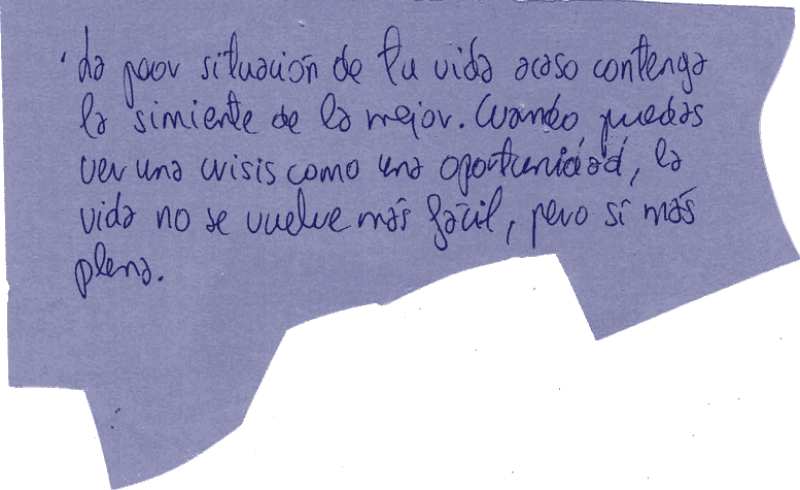 'La peor situación de tu vida acaso contenga
la simiente de la mejor. Cuando puedas
ver una crisis como una oportunidad, la
vida no se vuelve más fácil, pero sí más
plena.